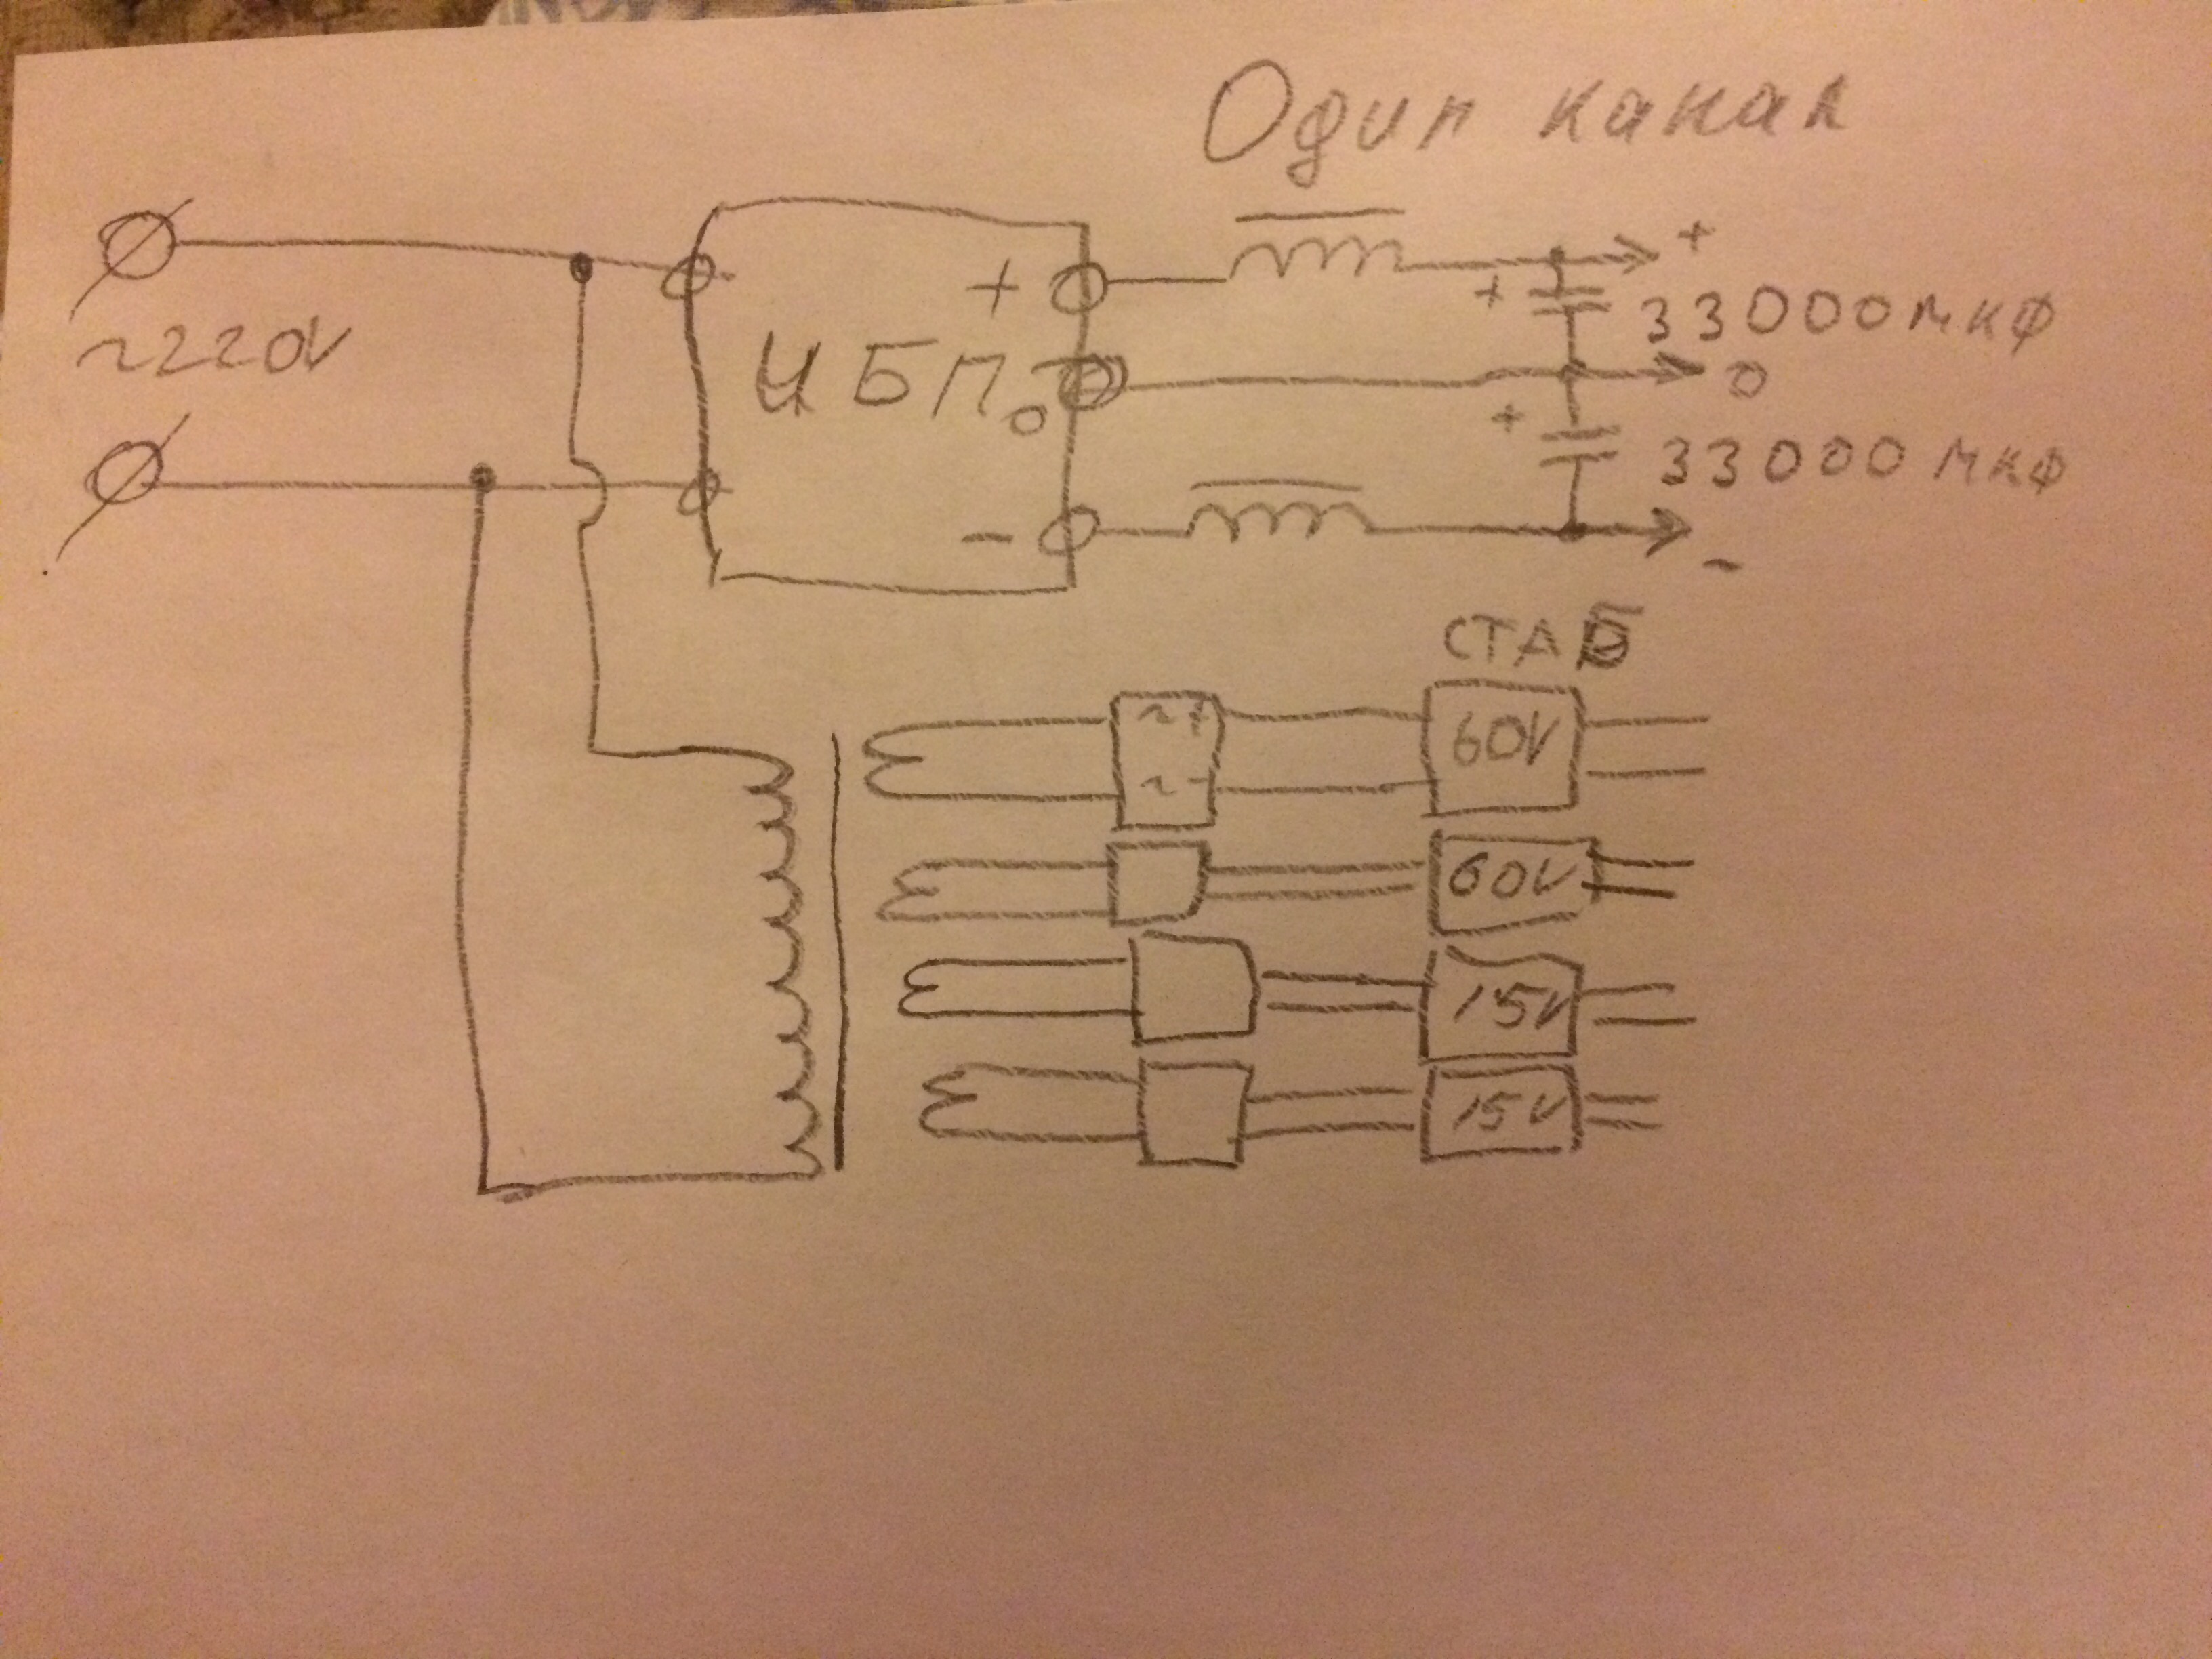 Один канал
~220V
ИБП
+
0
-
+
+
33000 мкф
0
+
33000 мкф
-
СТАБ
~+
~-
60V
60V
15V
15V